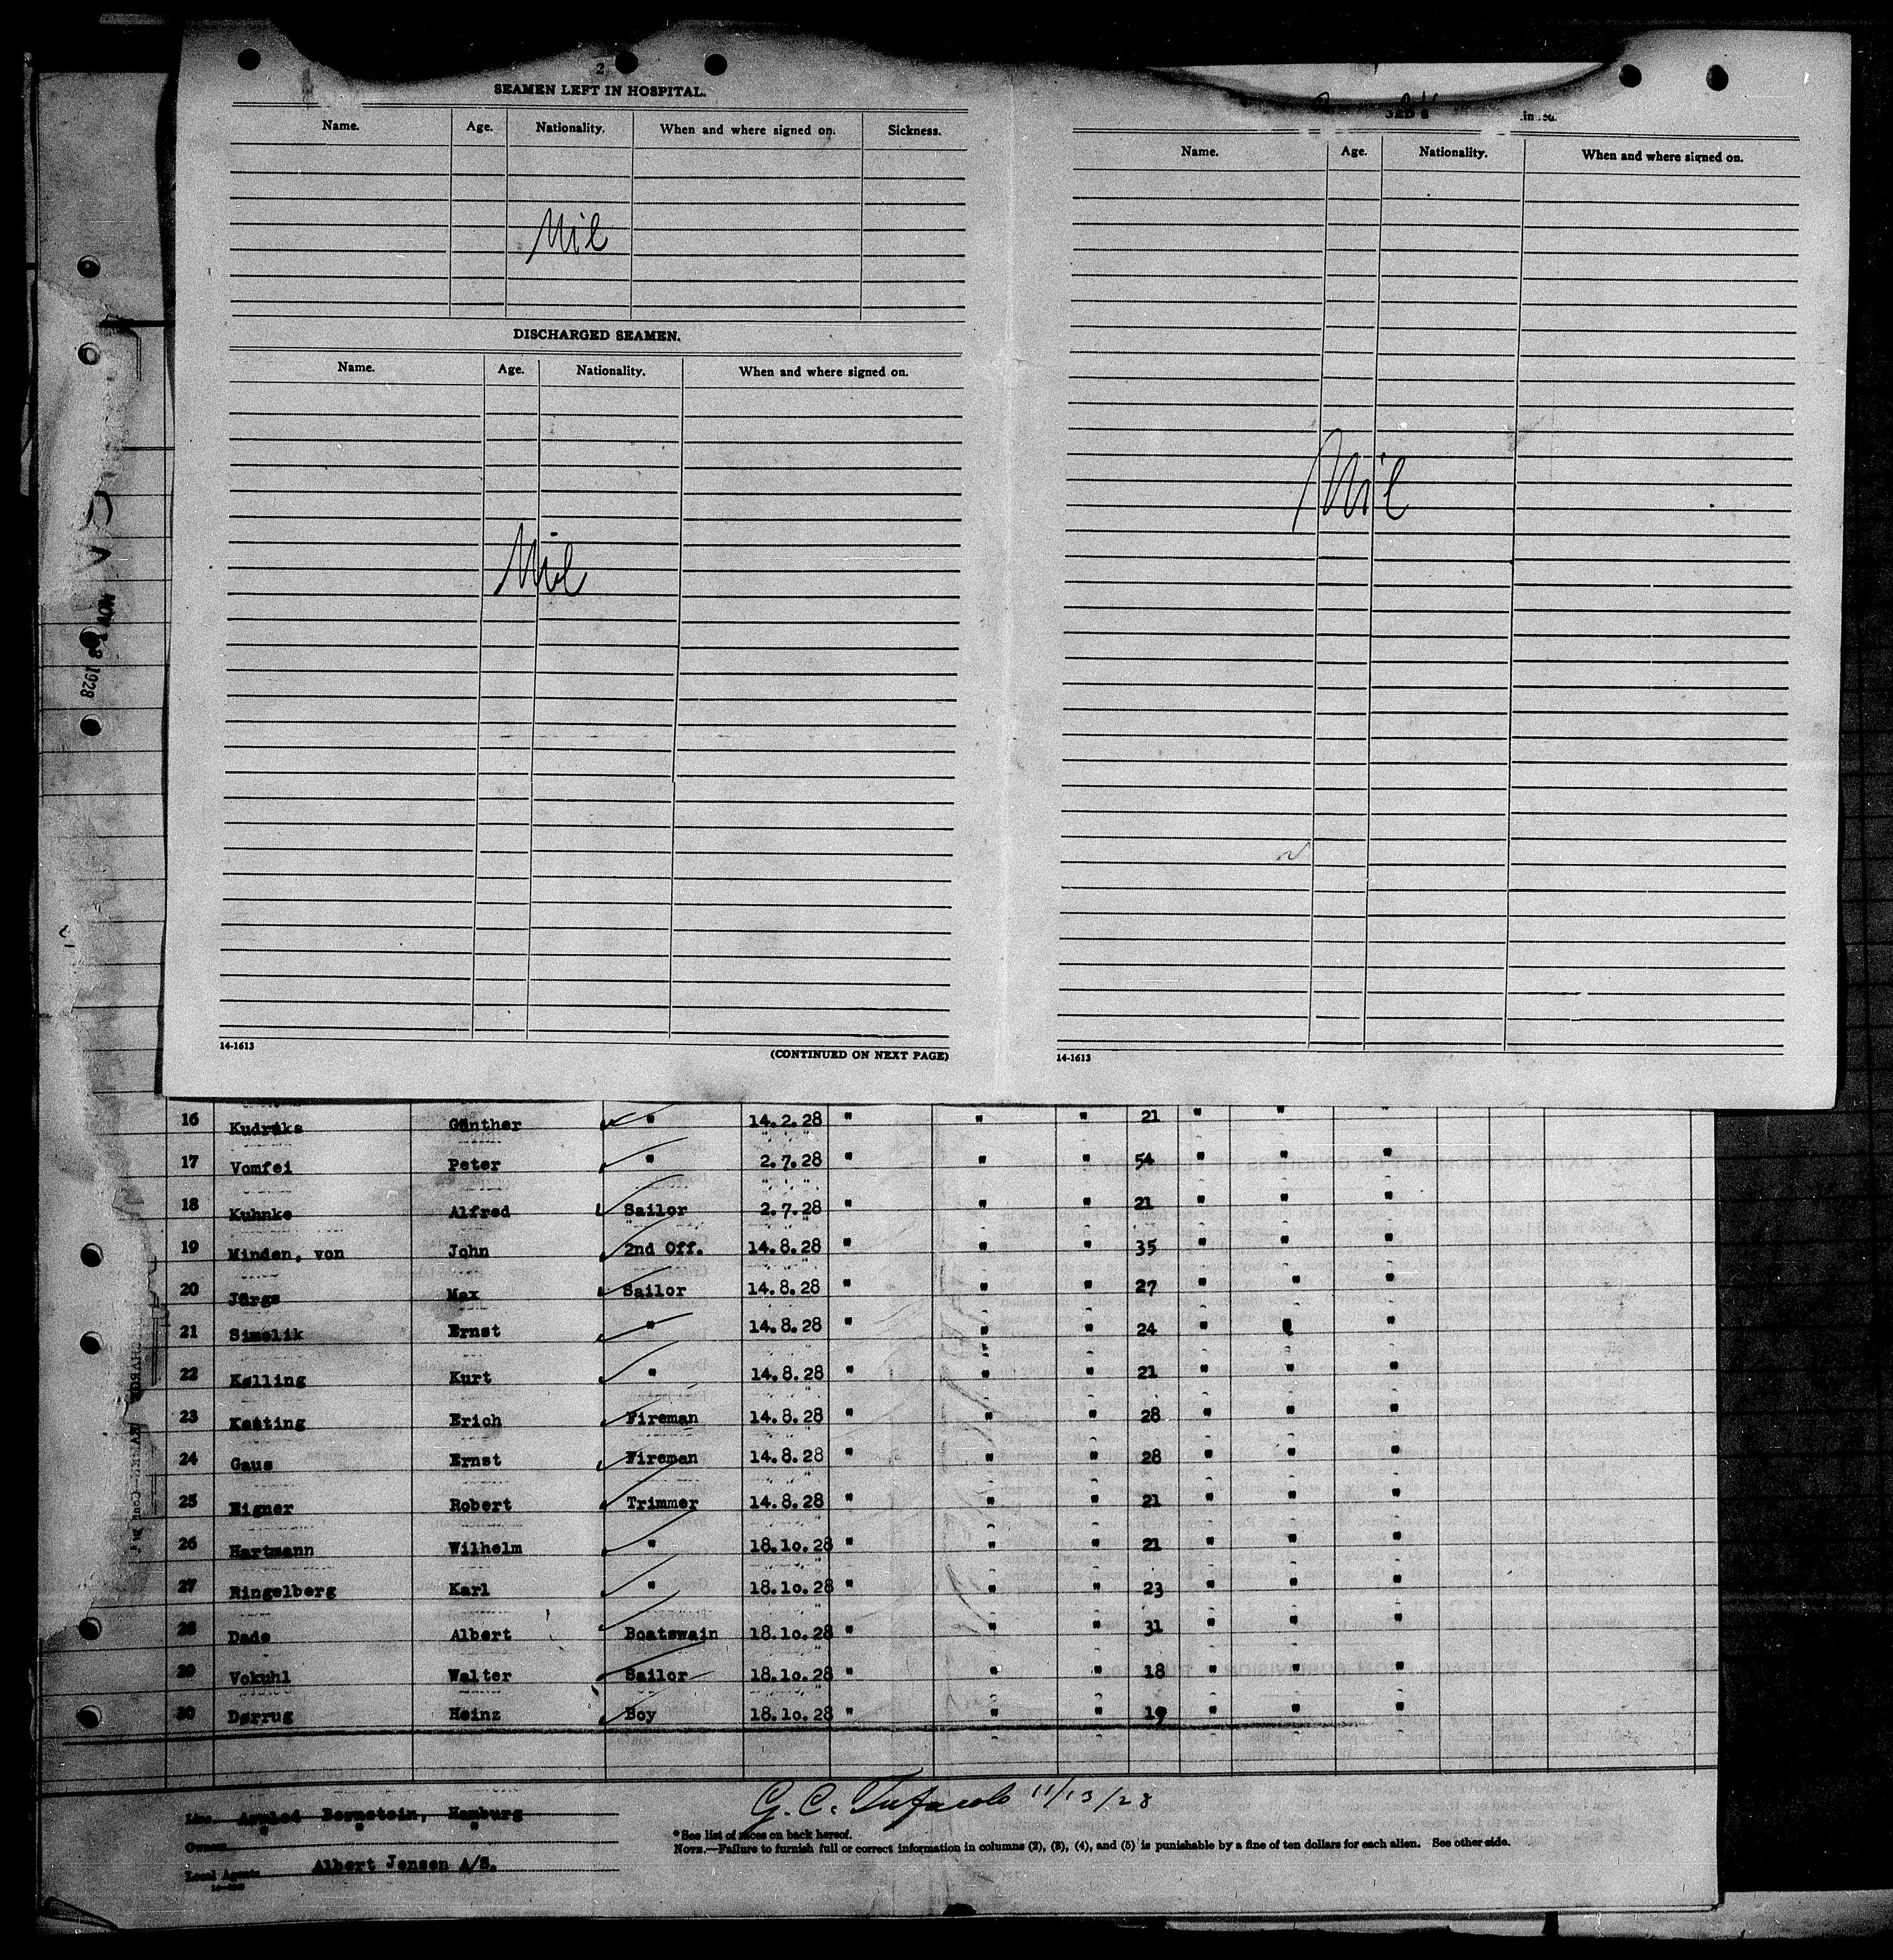 2
SEAMEN LEFT IN HOSPITAL.
Name. Age. Nationality. When and where signed on. Sickness.
Nil
DISCHARGED SEAMEN.
Name. Age. Nationality. When and where signed on.
Nil
14-1613 (CONTINUED ON NEXT PAGE)
Name. Age. Nationality. When and where signed on.
Nil
14-1613
NOV 13 1928
16 Kudraks Günther " 14.2.28 " " " 21 " " "
17 Vomfei Peter " 2.7.28 " " " 54 " " "
18 Kuhnke Alfred Sailor 2.7.28 " " " 21 " " "
19 Minden, von John 2nd Off. 14.8.28 " " " 35 " " "
20 Jürgs Max Sailor 14.8.28 " " " 27 " " "
21 Simelik Ernst " 14.8.28 " " " 24 " " "
22 Kølling Kurt " 14.8.28 " " " 21 " " "
23 Kesting Erich Fireman 14.8.28 " " " 28 " " "
24 Gaus Ernst Fireman 14.8.28 " " " 28 " " "
25 Eigner Robert Trimmer 14.8.28 " " " 21 " " "
26 Hartmann Wilhelm " 18.10.28 " " " 21 " " "
27 Ringelberg Karl " 18.10.28 " " " 23 " " "
28 Dade Albert Boatswain 18.10.28 " " " 31 " " "
29 Vokuhl Walter Sailor 18.10.28 " " " 18 " " "
30 Dørrug Heinz Boy 18.10.28 " " " 19 " " "
Line Arnold Bernstein, Hamburg
Owners " " "
Local Agents Albert Jensen A/S.
G. C. 11/13/28
*See list of races on back hereof.
NOTE.—Failure to furnish full or correct information in columns (2), (3), (4), and (5) is punishable by a fine of ten dollars for each alien. See other side.